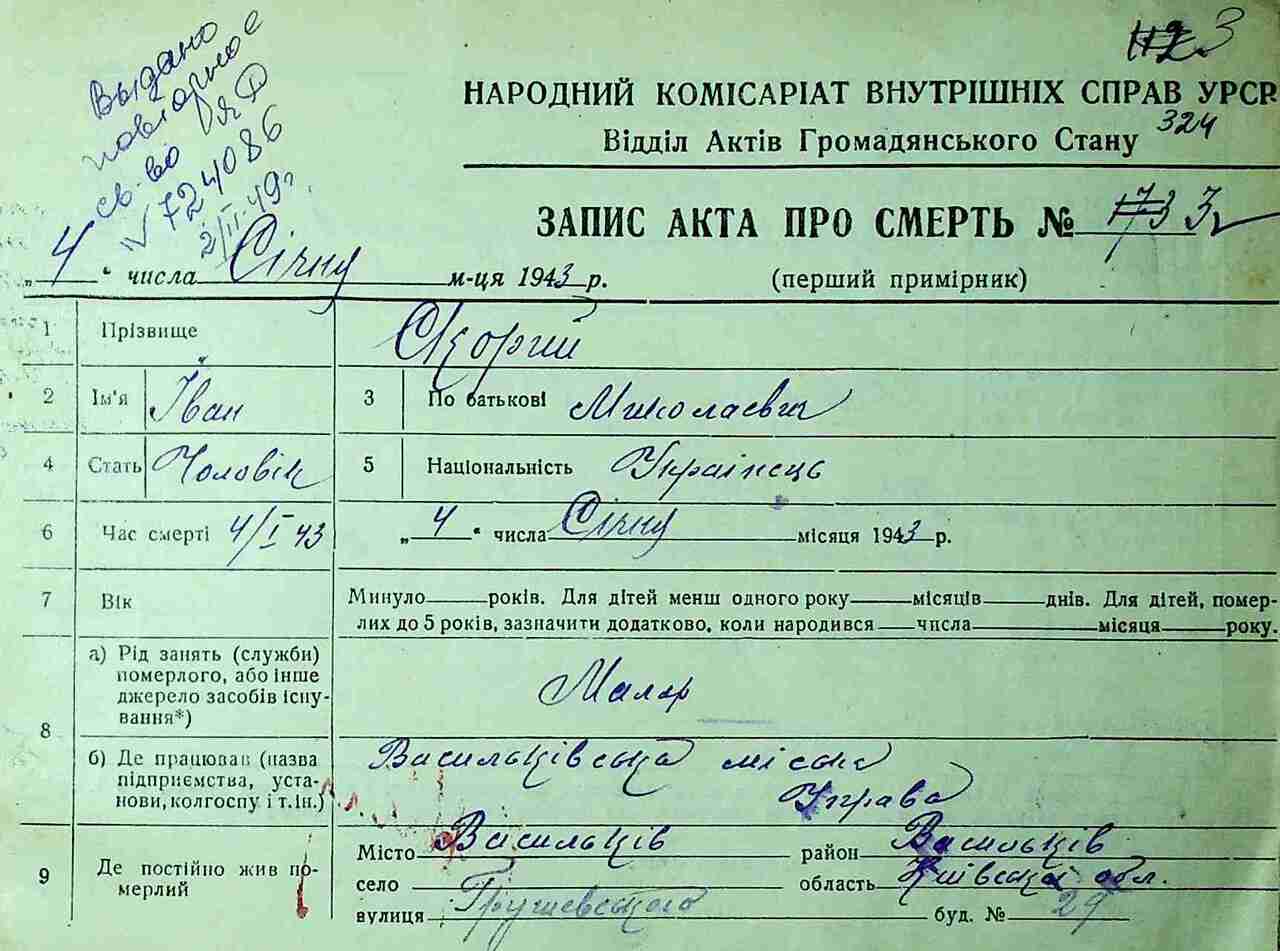 Выдано
повторное
св-во
724086
2/III-49г.
3
НАРОДНИЙ КОМІСАРІАТ ВНУТРІШНІХ СПРАВ УРСР
Відділ Актів Громадянського Стану 324
ЗАПИС АКТА ПРО СМЕРТЬ №
„4“ числа Січня м-ця 1943 р.
(перший примірник)
1 Прізвище Скорий
2 Ім'я Іван 3 По батькові Миколаєвич
4 Стать Чоловік 5 Національність Українець
6 Час смерті 4/I 43 „4“ числа Січня місяця 1943 р.
7 Вік Минуло років. Для дітей менш одного року місяців днів. Для дітей, помер-
лих до 5 років, зазначити додатково, коли народився числа місяця року.
8 а) Рід занять (служби)
померлого, або інше
джерело засобів існу-
вання*)
Маляр
б) Де працював (назва
підприємства, уста-
нови, колгоспу і т.ін.)
Васильківська міська
Управа
9 Де постійно жив по-
мерлий
Місто Васильків район Васильків
село область Київська обл.
вулиця Грушевського буд. № 29